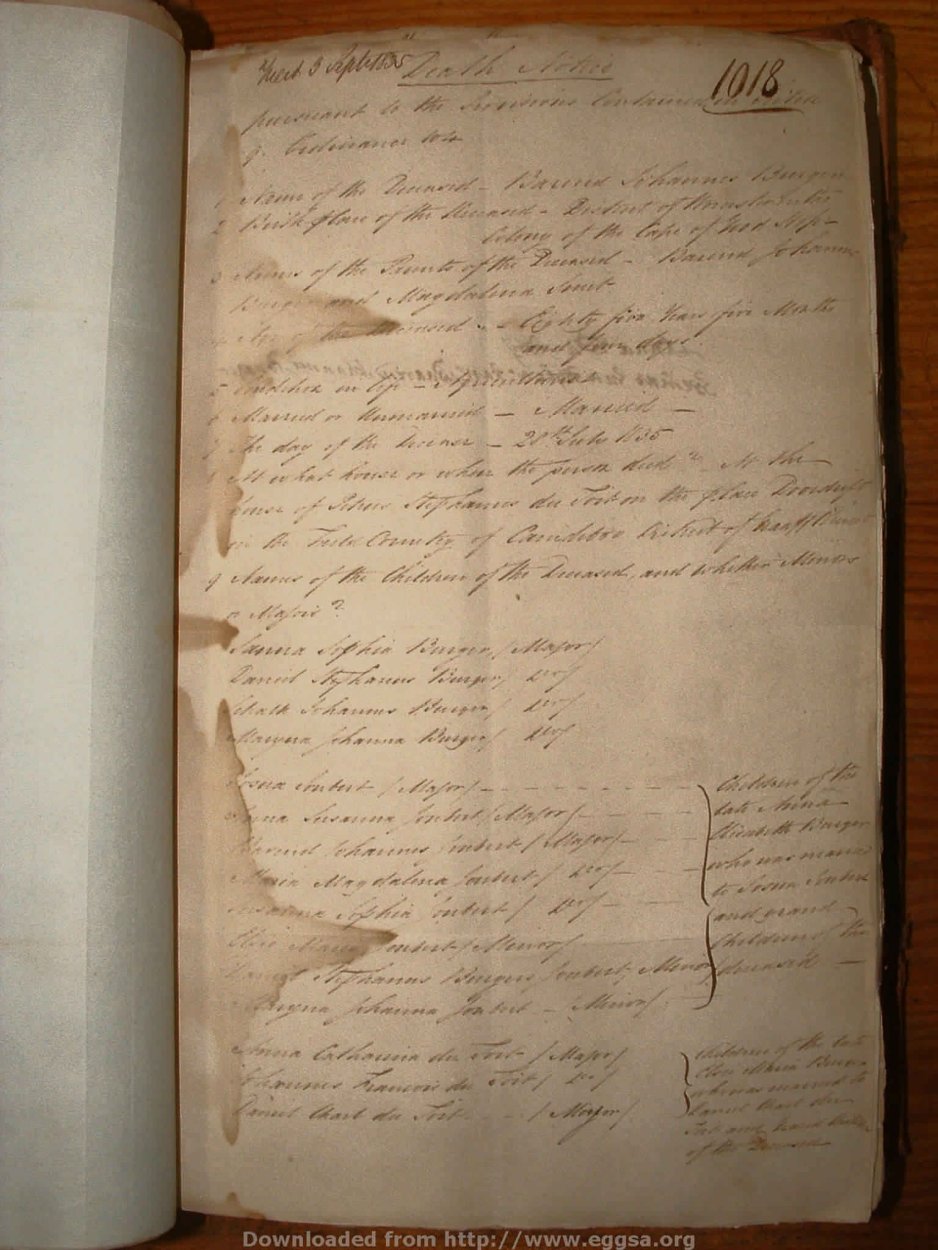 3 Sept 1835
Death Notice
1018
pursuant to the Provisions Contained in
Ordinance
1 Name of the Deceased - Barend Johannes Burger
2 Birth place of the Deceased - District of the
Colony of the Cape of Good Hope -
3 Names of the Parents of the Deceased - Barend Johannes
Burger and Magdalena Smit
4 Age of the Deceased - Eighty five Years five Months
and days
5 Condition in life -
6 Married or Unmarried - Married -
7 The day of the Decease - 20th July 1835
8 At what house or where the person died? - At the
house of Petrus Stephanus du Toit on the place
in the Field Cornetcy of Camdeboo District of Graaff Reinet
9 Names of the Children of the Deceased, and whether Minors
or Majors?
Sanna Sophia Burger / Major /
Daniel Stephanus Burger / do /
Schalk Johannes Burger / do /
Johanna Burger / do /
Josua Joubert / Major / - - - - - - -
Susanna Joubert / Major / - - -
Barend Johannes Joubert / Major / - - -
Maria Magdalena Joubert / do / - - -
Susanna Sophia Joubert / do / - - -
Maria Joubert / Minor / -
Daniel Stephanus Burger Joubert / Minor /
Johanna Joubert - Minor / -
Children of the
late Anna
Elizabeth Burger
who was married
to Josua Joubert
and grand
Children of the
deceased -
Anna Catharina du Toit / Major /
Johannes Francois du Toit / do /
Daniel du Toit - - / Major /
Children of the late
Maria Burger
who was married to
Daniel du
Toit and Grand Children
of the Deceased
Downloaded from http://www.eggsa.org